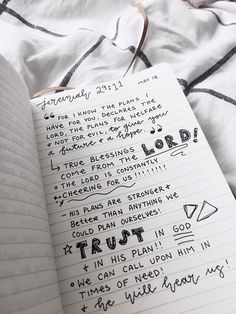 Jeremiah 29:11 MAY 18
"FOR I KNOW THE PLANS I
HAVE FOR YOU, DECLARES THE
LORD, THE PLANS FOR WELFARE
+ NOT FOR EVIL, to give you
a future + a hope."
↳ TRUE BLESSINGS
COME FROM THE LORD!
○ THE LORD IS CONSTANTLY
CHEERING FOR US!!!!!!!
- HIS PLANS ARE STRONGER +
BETTER THAN ANYTHING WE
COULD PLAN OURSELVES!
☆ TRUST IN GOD
+ IN HIS PLAN!!
○ WE CAN CALL UPON HIM IN
TIMES OF NEED!
+ he will hear us!